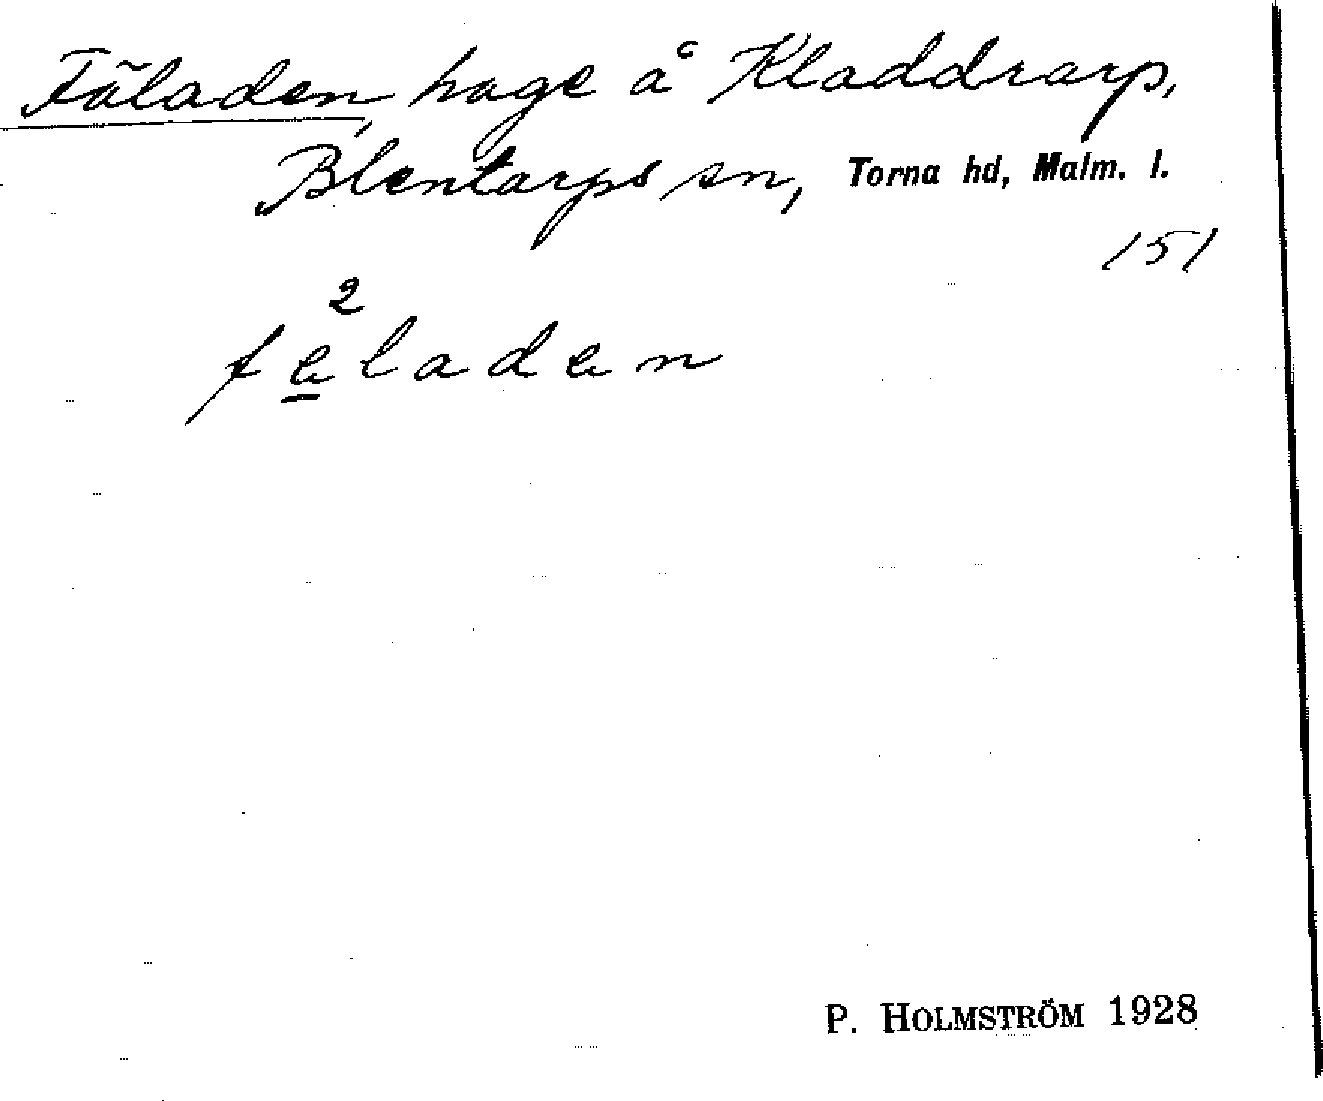 Fäladen, hage å Kladdrarp,
Blentarps sn, Torna hd, Malm. l.
151
2
feladen
P. HOLMSTRÖM 1928